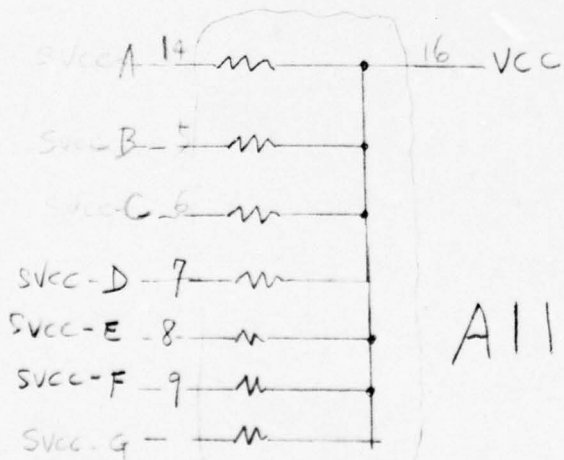 SVCC-A 14 16 VCC
SVCC-B 5
SVCC-C 6
SVCC-D 7
SVCC-E 8
A11
SVCC-F 9
SVCC-G